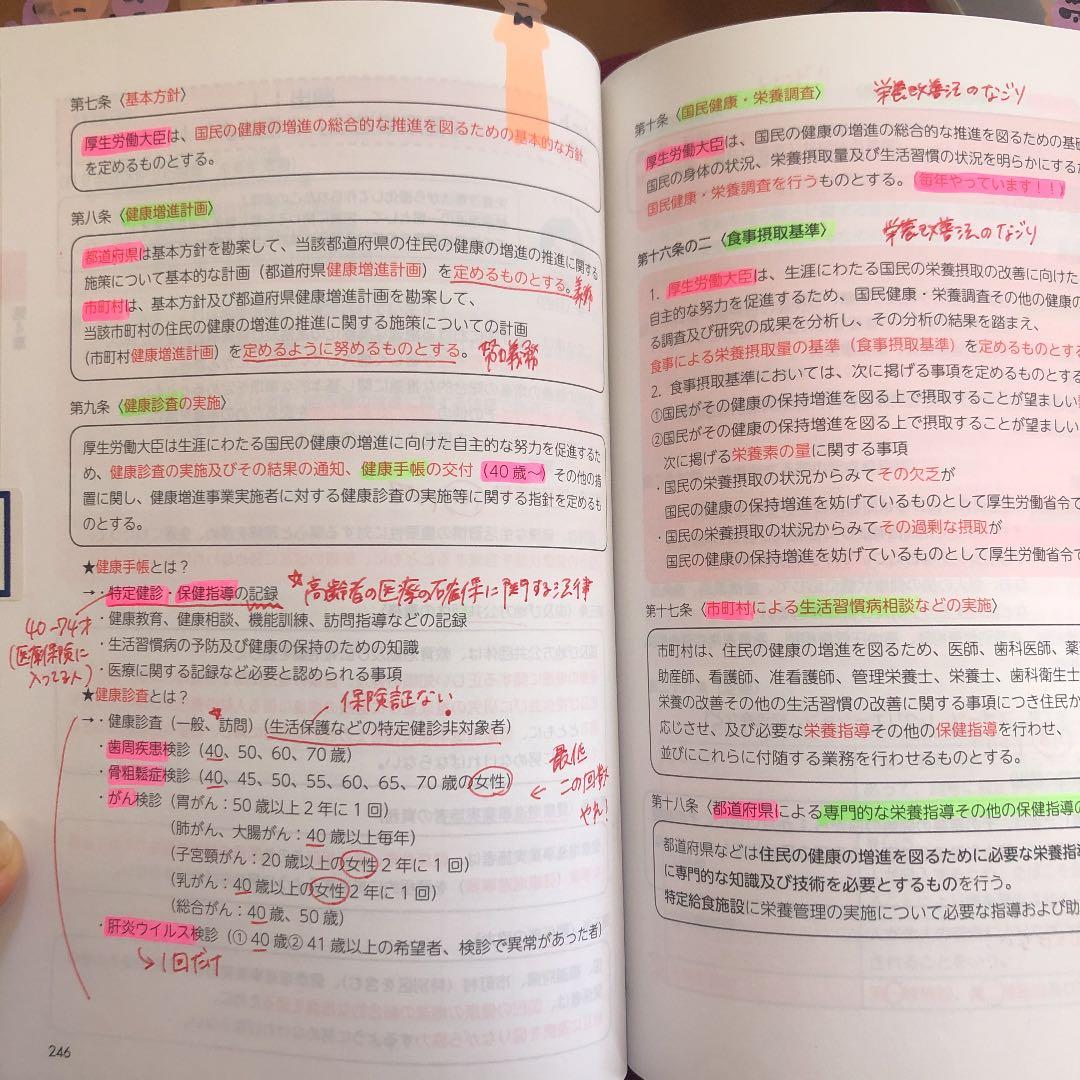 第七条〈基本方針〉
厚生労働大臣は、国民の健康の増進の総合的な推進を図るための基本的な方針
を定めるものとする。
第八条〈健康増進計画〉
都道府県は基本方針を勘案して、当該都道府県の住民の健康の増進の推進に関する
施策について基本的な計画（都道府県健康増進計画）を定めるものとする。義務
市町村は、基本方針及び都道府県健康増進計画を勘案して、
当該市町村の住民の健康の増進の推進に関する施策についての計画
（市町村健康増進計画）を定めるように努めるものとする。努力義務
第九条〈健康診査の実施〉
厚生労働大臣は生涯にわたる国民の健康の増進に向けた自主的な努力を促進するた
め、健康診査の実施及びその結果の通知、健康手帳の交付（40歳〜）その他の措
置に関し、健康増進事業実施者に対する健康診査の実施等に関する指針を定めるも
のとする。
★健康手帳とは？
→・特定健診・保健指導の記録 ☆高齢者の医療の確保に関する法律
40〜74才
（医療保険に
入ってる人）
・健康教育、健康相談、機能訓練、訪問指導などの記録
・生活習慣病の予防及び健康の保持のための知識
・医療に関する記録など必要と認められる事項
★健康診査とは？
保険証ない。
→・健康診査（一般、訪問）（生活保護などの特定健診非対象者）
・歯周疾患検診（40、50、60、70歳）
・骨粗鬆症検診（40、45、50、55、60、65、70歳の女性）
← 最低
この回数
やれ！
・がん検診（胃がん：50歳以上2年に1回）
（肺がん、大腸がん：40歳以上毎年）
（子宮頸がん：20歳以上の女性2年に1回）
（乳がん：40歳以上の女性2年に1回）
（総合がん：40歳、50歳）
・肝炎ウイルス検診（①40歳②41歳以上の希望者、検診で異常があった者）
↳1回だけ
246
第十条〈国民健康・栄養調査〉 栄養改善法のなごり
厚生労働大臣は、国民の健康の増進の総合的な推進を図るための基礎
国民の身体の状況、栄養摂取量及び生活習慣の状況を明らかにするた
国民健康・栄養調査を行うものとする。（毎年やっています！！）
第十六条の二〈食事摂取基準〉 栄養改善法のなごり
1．厚生労働大臣は、生涯にわたる国民の栄養摂取の改善に向けた
自主的な努力を促進するため、国民健康・栄養調査その他の健康の
る調査及び研究の成果を分析し、その分析の結果を踏まえ、
食事による栄養摂取量の基準（食事摂取基準）を定めるものとする
2．食事摂取基準においては、次に掲げる事項を定めるものとする
①国民がその健康の保持増進を図る上で摂取することが望ましい
②国民がその健康の保持増進を図る上で摂取することが望ましい
次に掲げる栄養素の量に関する事項
・国民の栄養摂取の状況からみてその欠乏が
国民の健康の保持増進を妨げているものとして厚生労働省令で
・国民の栄養摂取の状況からみてその過剰な摂取が
国民の健康の保持増進を妨げているものとして厚生労働省令で
第十七条〈市町村による生活習慣病相談などの実施〉
市町村は、住民の健康の増進を図るため、医師、歯科医師、薬
助産師、看護師、准看護師、管理栄養士、栄養士、歯科衛生士
栄養の改善その他の生活習慣の改善に関する事項につき住民か
応じさせ、及び必要な栄養指導その他の保健指導を行わせ、
並びにこれらに付随する業務を行わせるものとする。
第十八条〈都道府県による専門的な栄養指導その他の保健指導の
都道府県などは住民の健康の増進を図るために必要な栄養指
に専門的な知識及び技術を必要とするものを行う。
特定給食施設に栄養管理の実施について必要な指導および助